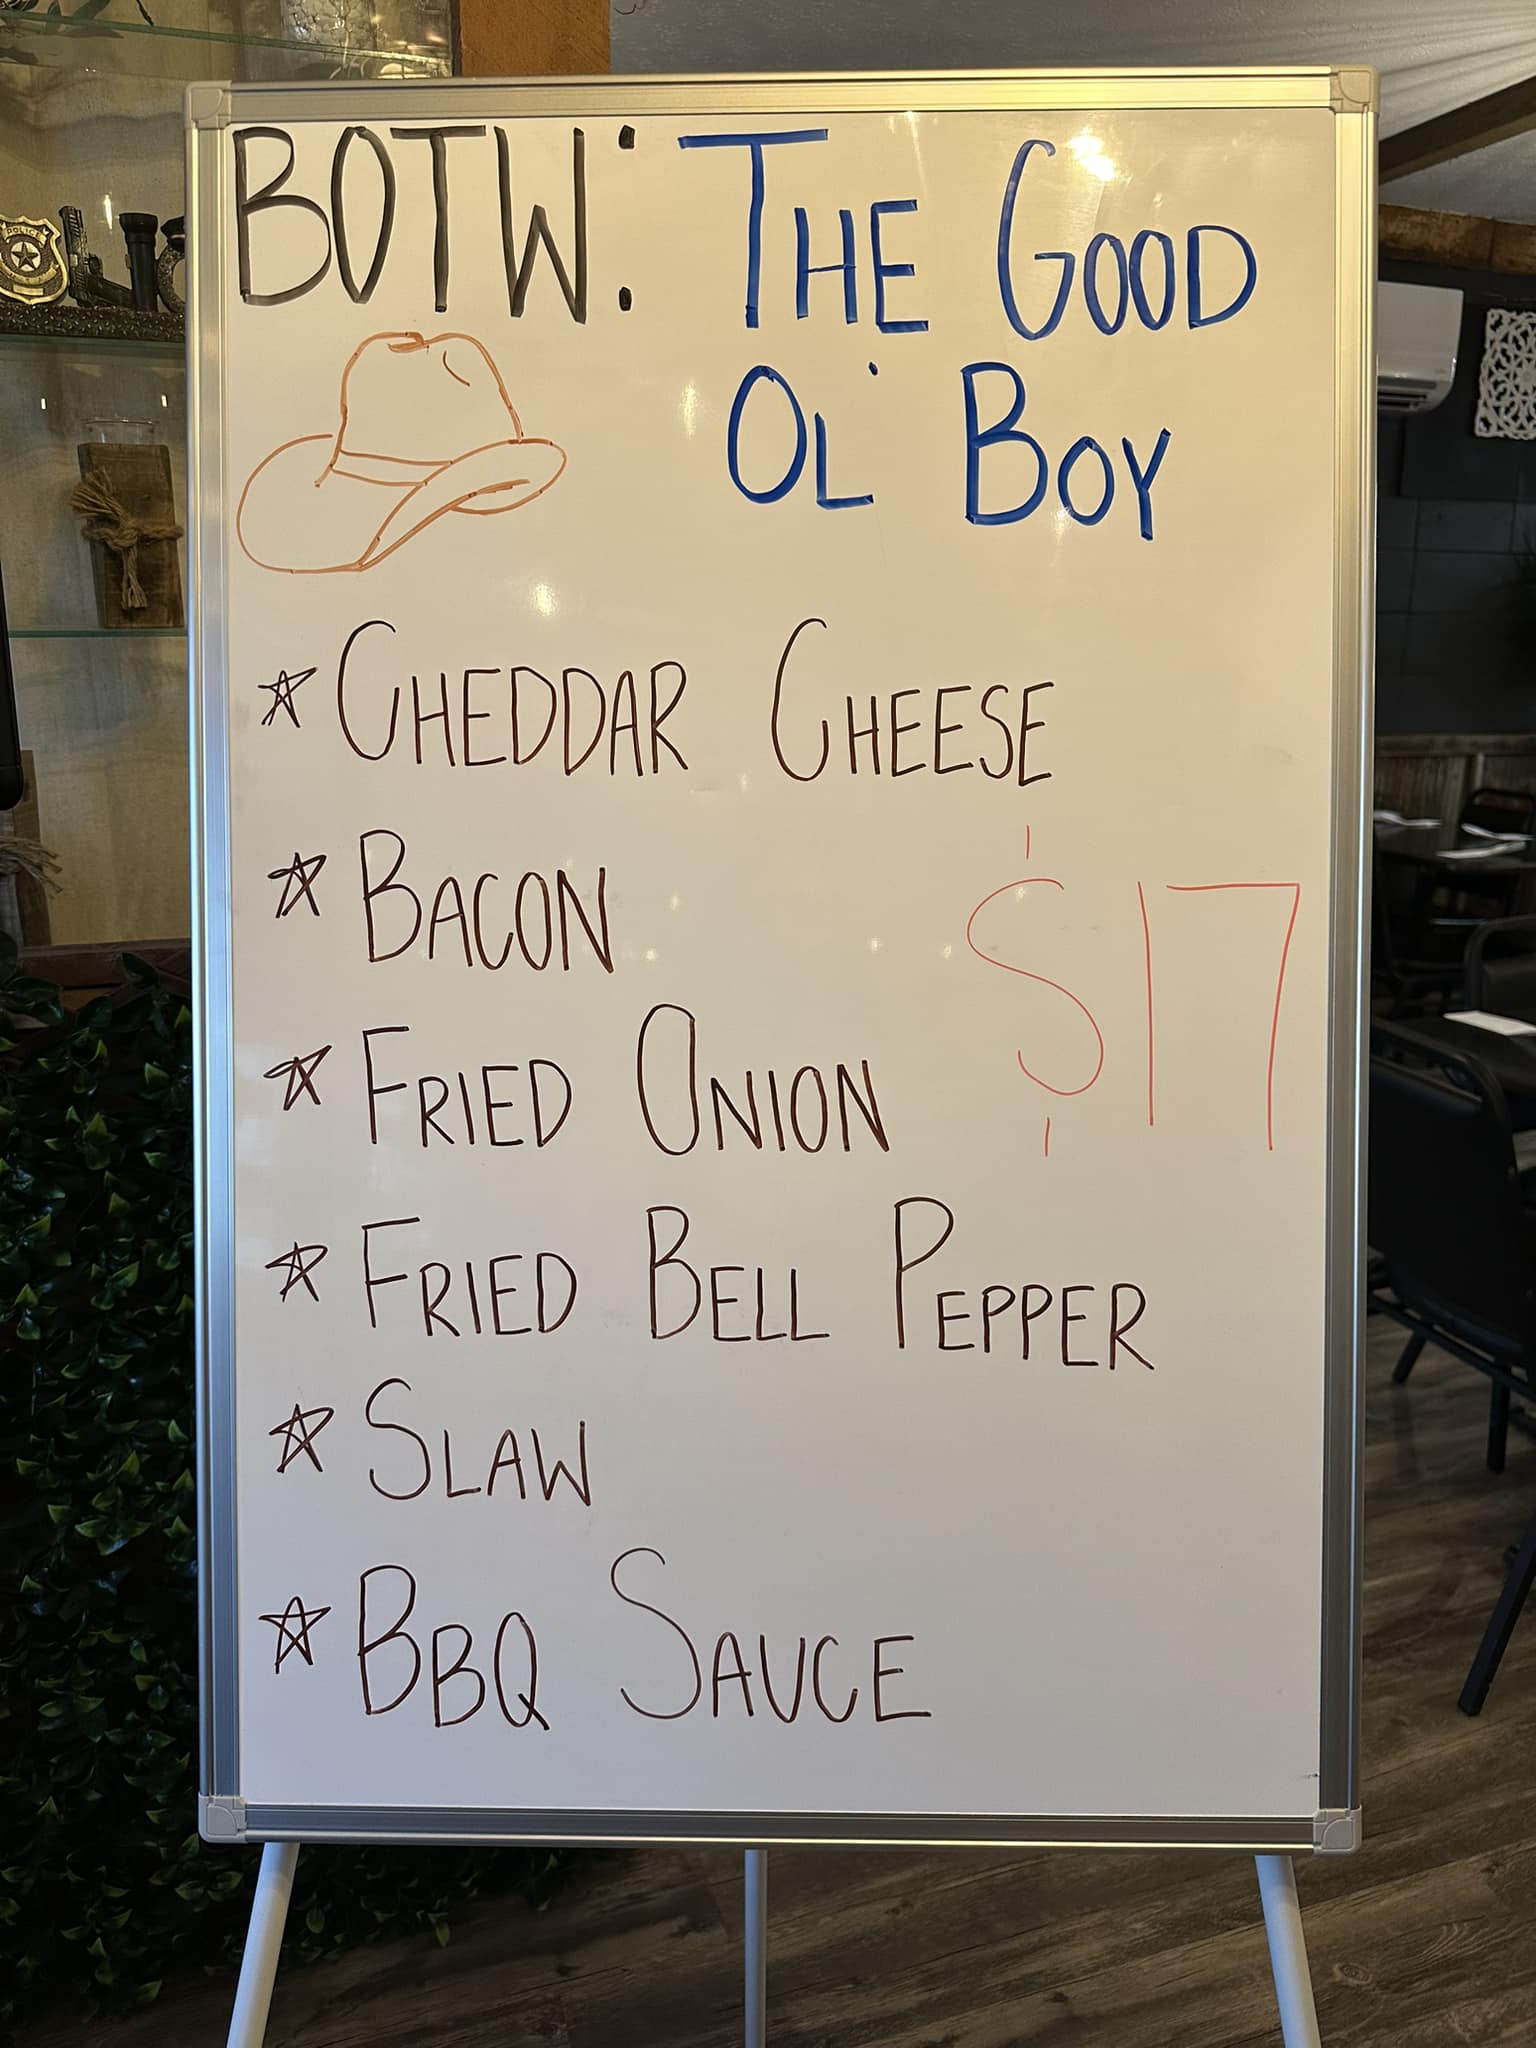 BOTW: THE GOOD
OL' BOY
CHEDDAR CHEESE
BACON
$17
FRIED ONION
FRIED BELL PEPPER
SLAW
BBQ SAUCE
POLICE